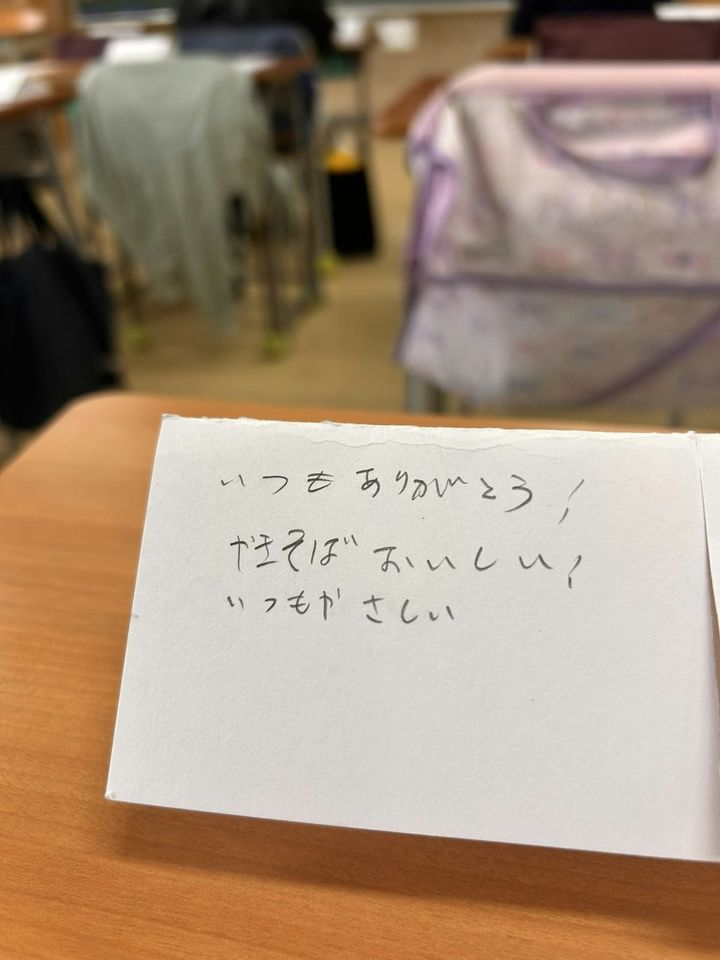 いつも ありがとう!
やきそば おいしい!
いつもや さしい